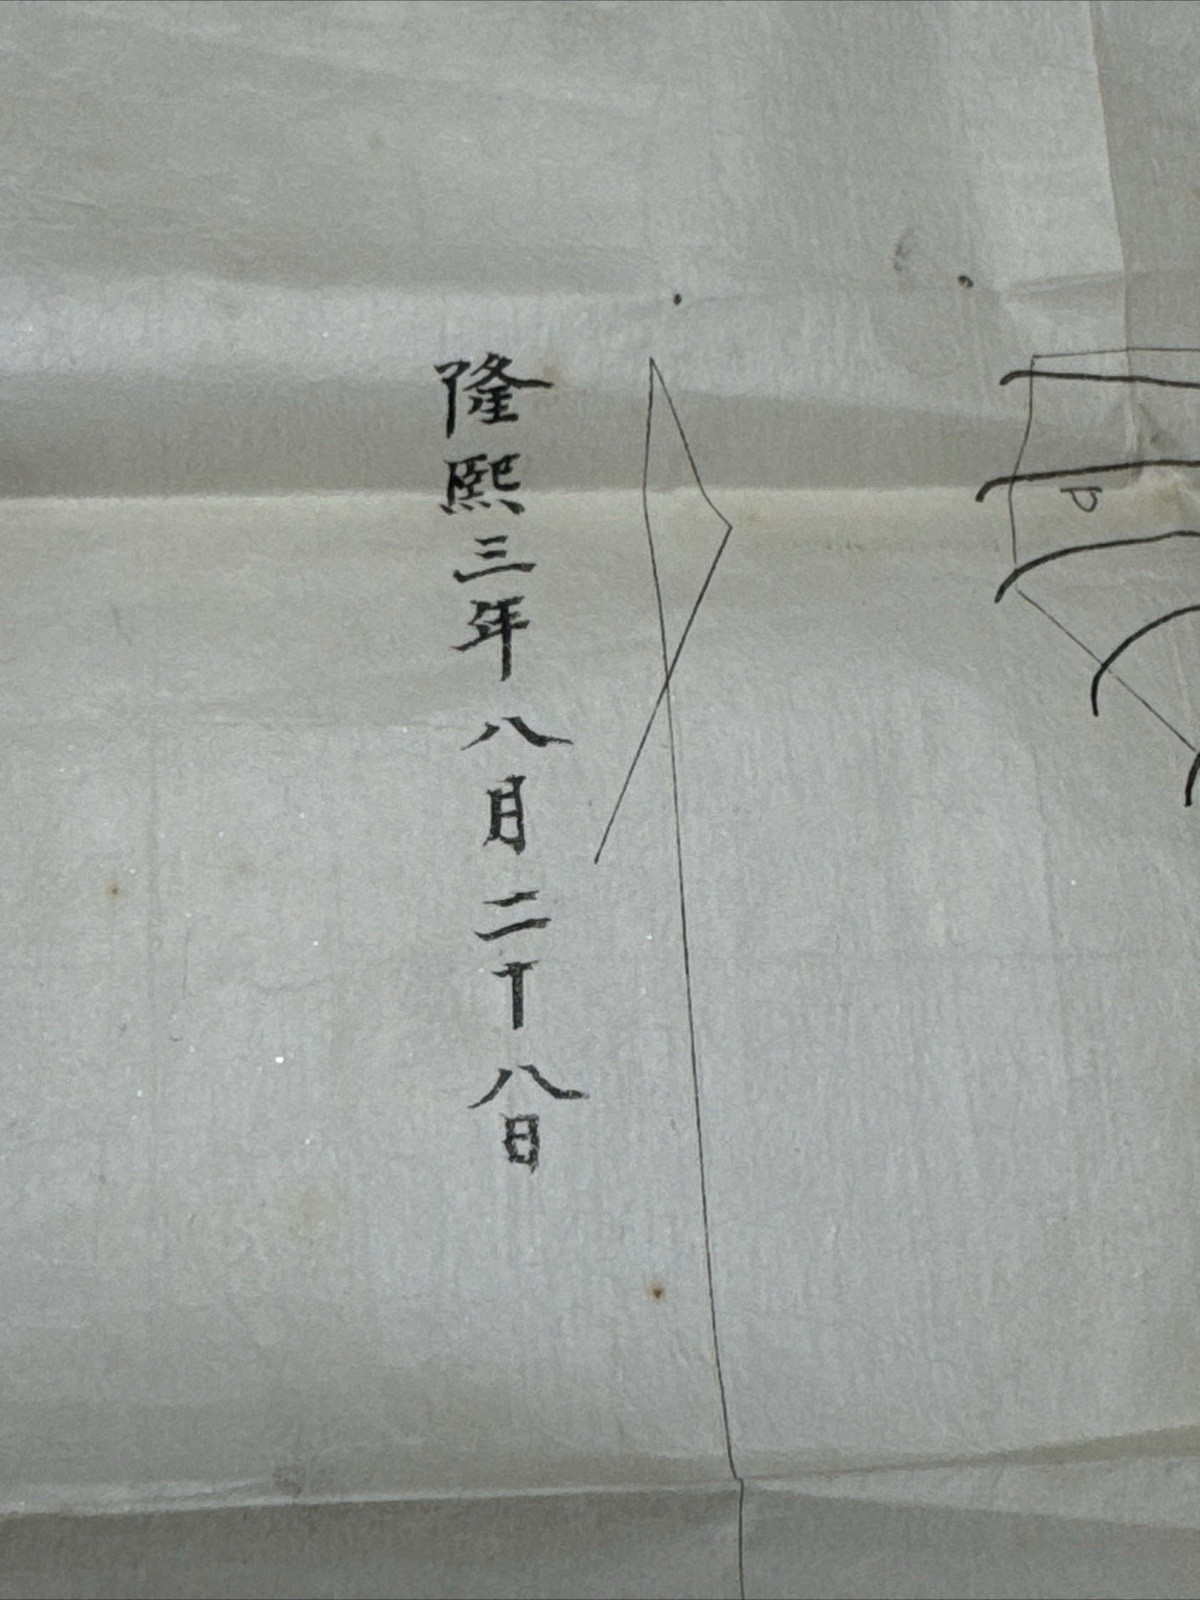 隆熙三年八月二十八日